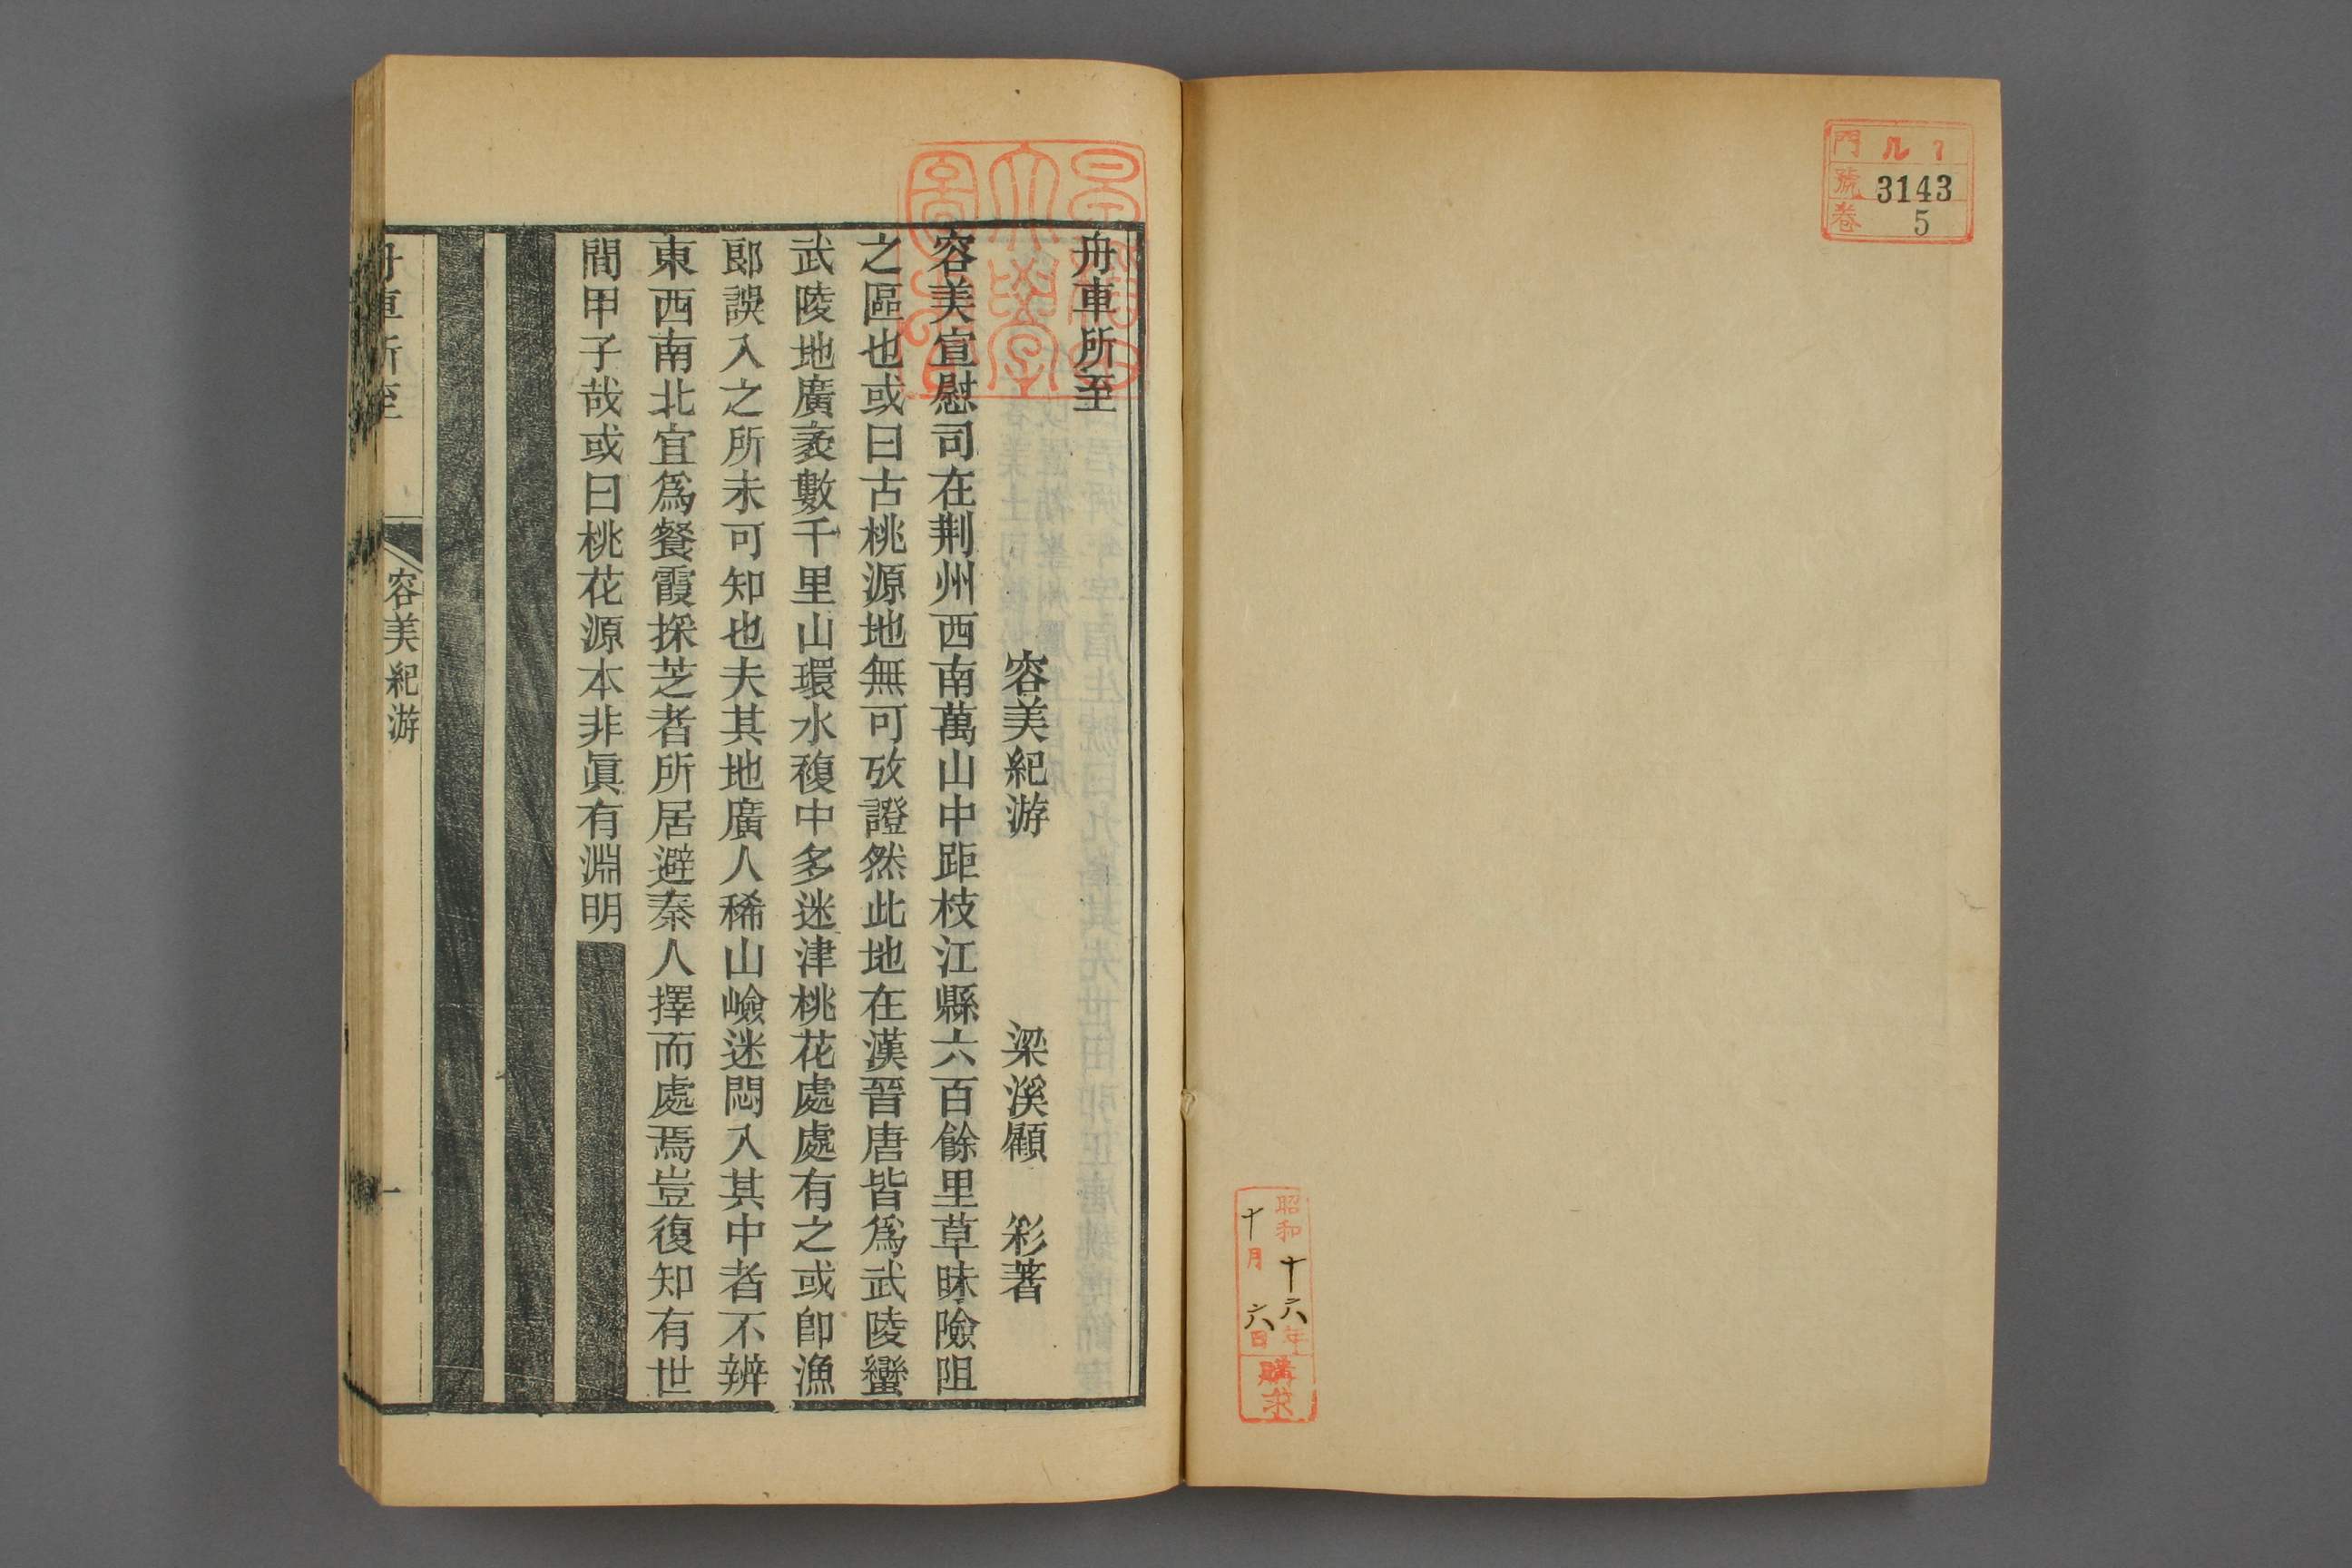 門 ル
號 3143
卷 5
昭和十六年
十月六日
購求
舟車所至
容美紀游
梁溪顧 彩著
容美宣慰司在荆州西南萬山中距枝江縣六百餘里草昧險阻
之區也或曰古桃源地無可攷證然此地在漢晉唐皆爲武陵蠻
武陵地廣袤數千里山環水複中多迷津桃花處處有之或卽漁
郎誤入之所未可知也夫其地廣人稀山嶮迷悶入其中者不辨
東西南北宜爲餐霞採芝者所居避秦人擇而處焉豈復知有世
間甲子哉或曰桃花源本非眞有淵明
舟車所至
容美紀游
一